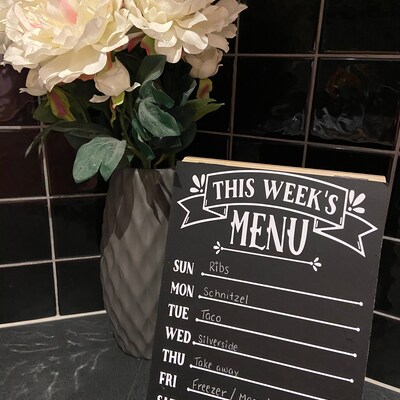 THIS WEEK'S
MENU
SUN Ribs
MON Schnitzel
TUE Taco
WED Silverside
THU Take away
FRI Freezer /